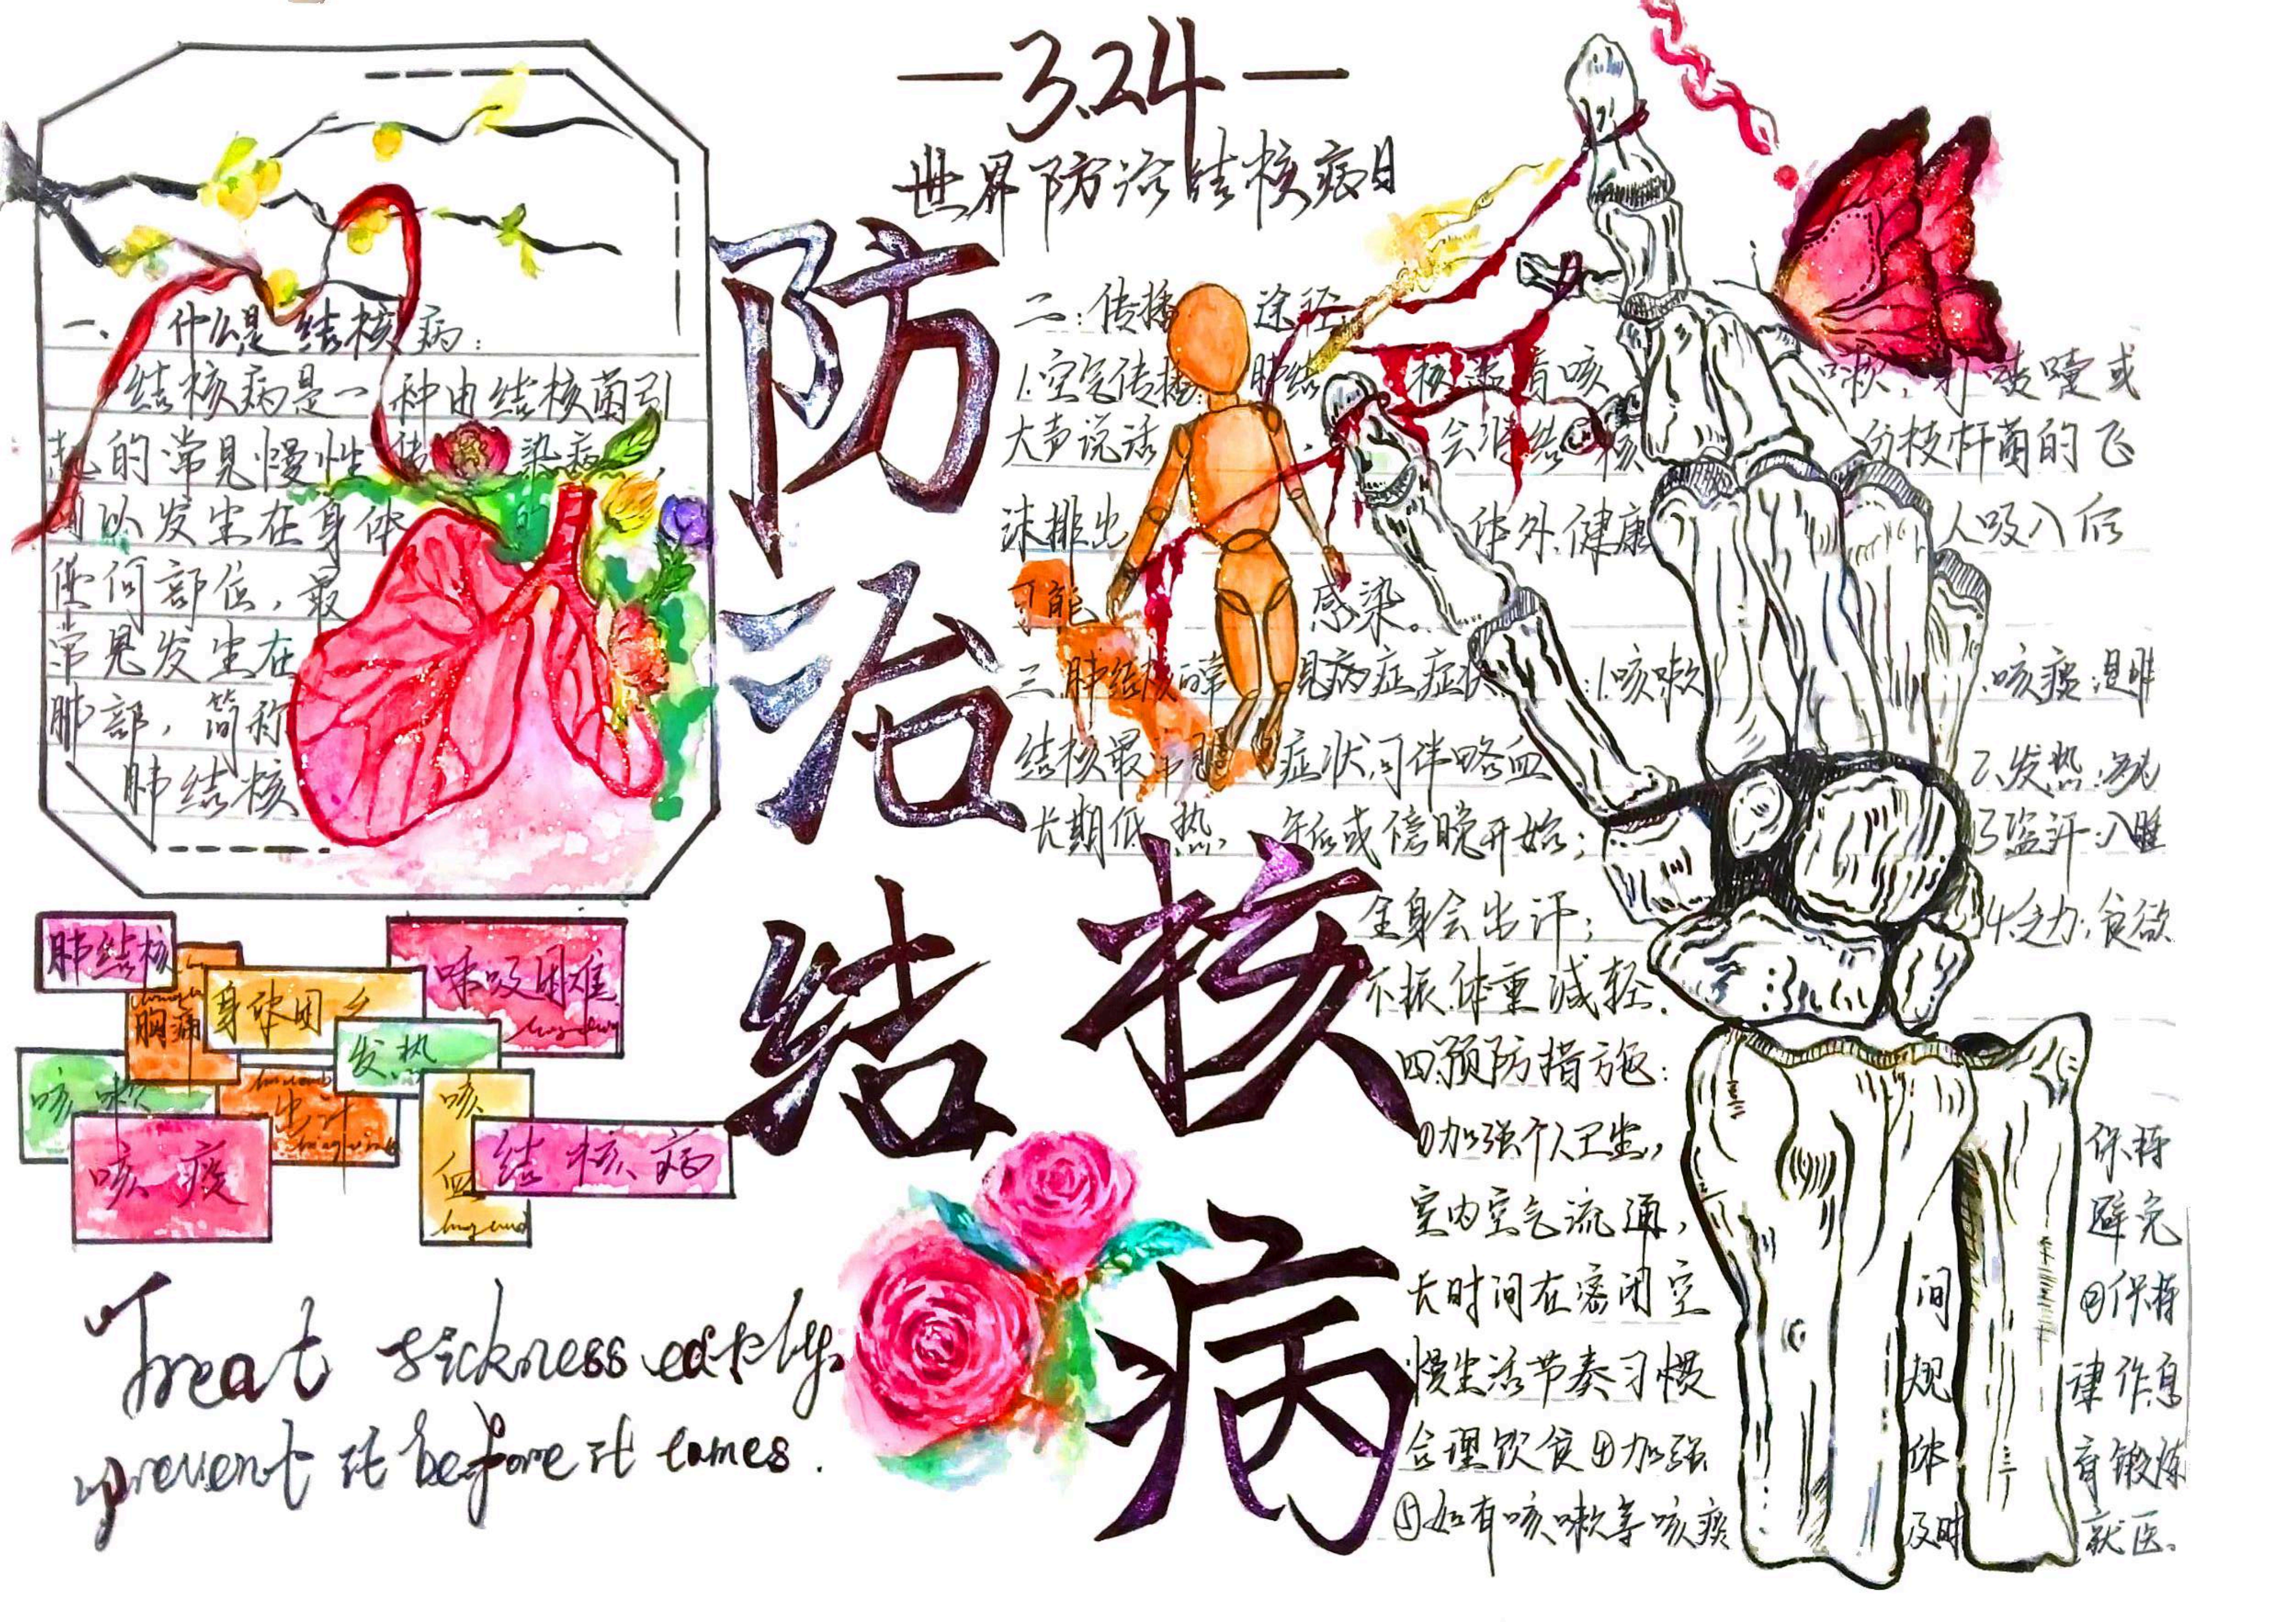 3.24
世界防治结核病日
防治结核病
一、什么是结核病:
结核病是一种由结核菌引
起的常见慢性传染病,
可以发生在身体的
任何部位,最
常见发生在
肺部,简称
肺结核
二:传播途径:
1.空气传播:肺结核患者咳嗽,打喷嚏或
大声说话,会将结核分枝杆菌的飞
沫排出体外,健康人吸入后
可能感染。
三.肺结核的常见病症症状:1.咳嗽.咳痰:是肺
结核最症状,可伴咯血2.发热:
长期低热,午后或傍晚开始;3盗汗:入睡
全身会出汗;4.乏力:食欲
不振.体重减轻.
四.预防措施:
①加强个人卫生,保持
室内空气流通,避免
长时间在密闭空间②保持
慢生活节奏习惯规律作息
合理饮食④加强体育锻炼
⑤如有咳嗽等咳痰及时就医。
肺结核
胸痛
身体困乏
呼吸困难
发热
咳嗽
出汗
咳血
咳痰
结核病
Treat sickness early,
prevent it before it comes.